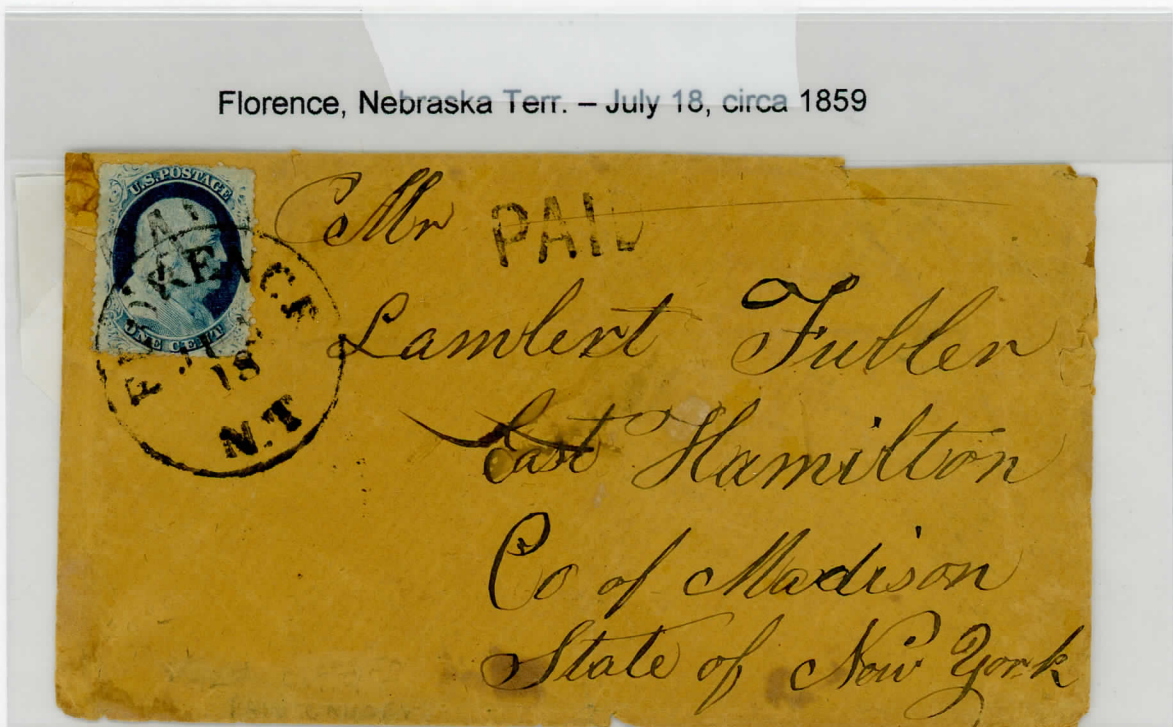 Florence, Nebraska Terr. – July 18, circa 1859
U.S. POSTAGE
ONE CENT
FLORENCE
18
N.T
PAID
Mr
Lambert Fubler
East Hamilton
Co of Madison
State of New York